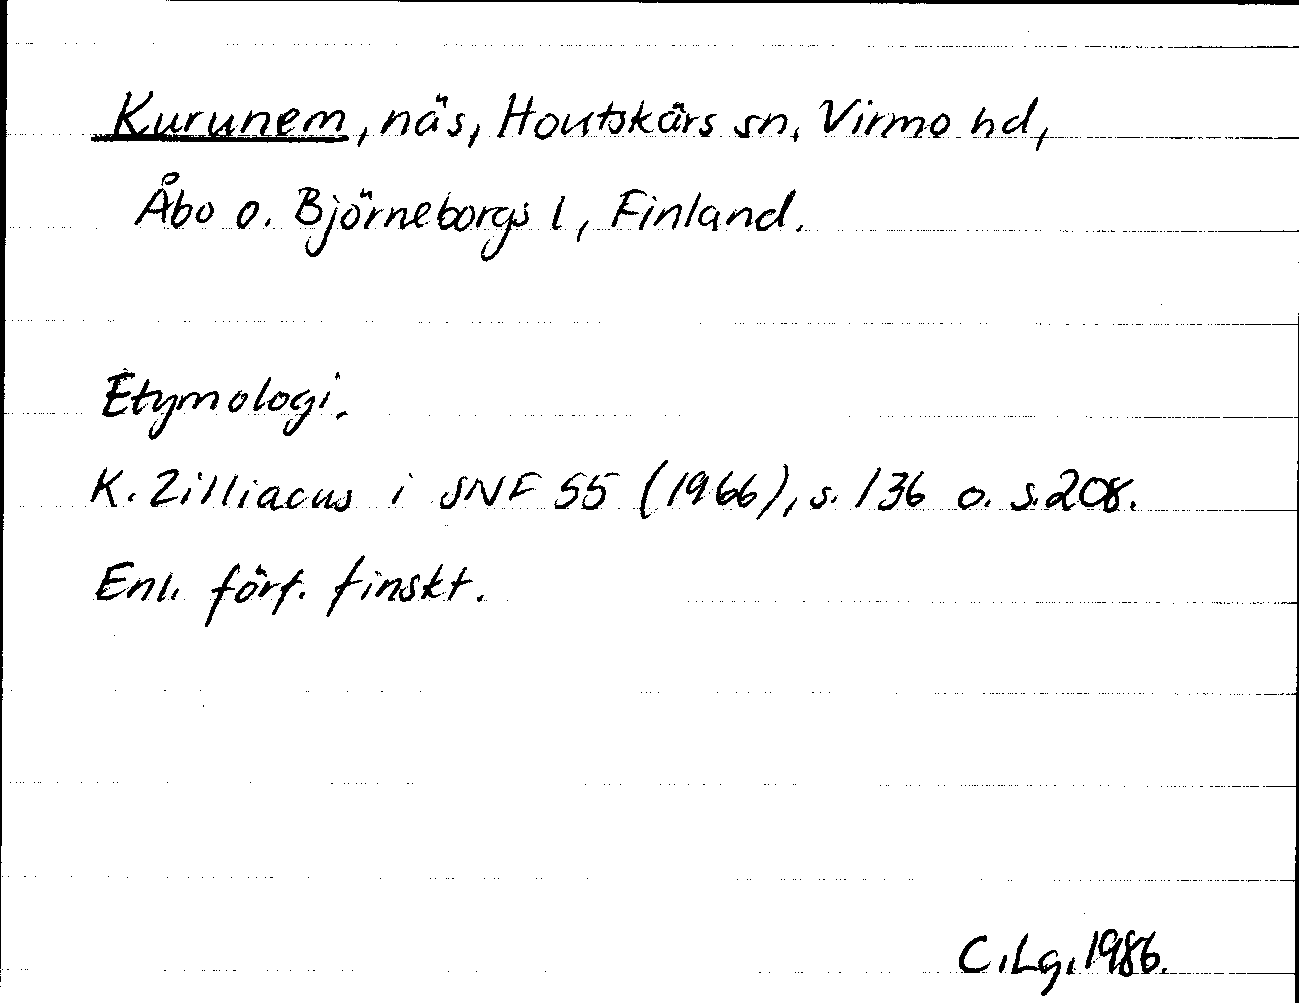 Kurunem, näs, Houtskärs sn, Virmo hd,
Åbo o. Björneborgs l, Finland.
Etymologi.
K. Zilliacus i SNF 55 (1966), s. 136 o. s. 208.
Enl. förf. finskt.
C. Lg. 1986.